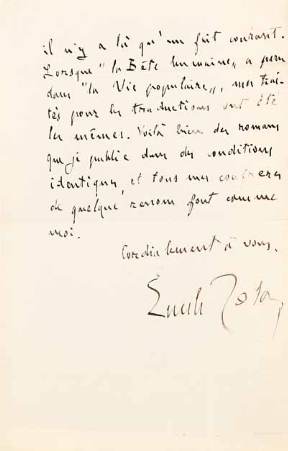 il n'y a là qu'un fait courant.
Lorsque "la Bête humaine" a paru
dans "la Vie populaire", mes trai-
tés pour les traductions ont été
les mêmes. Voilà bien des romans
que je publie dans des conditions
identiques, et tous mes confrères
de quelque renom font comme
moi.
Cordialement à vous,
Emile Zola